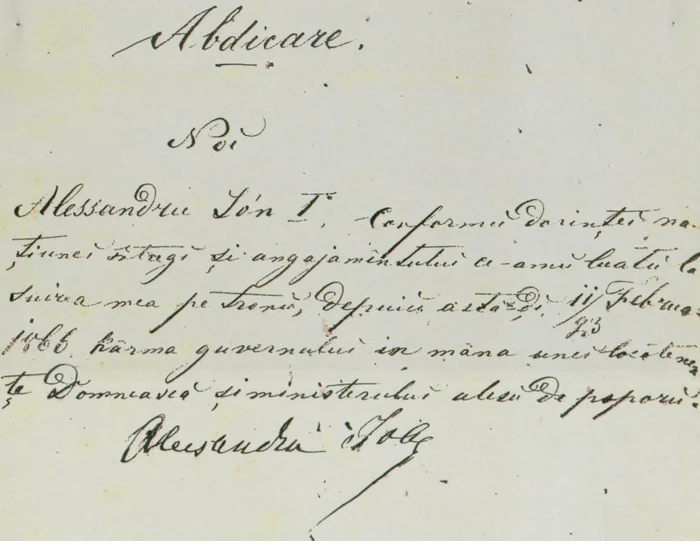 Abdicare.
Noi
Alessandru Ión I. Conformŭ dorinţei na-
ţiunei întregi şi angajamîntului ce-amŭ luatŭ la
suirea mea pe tronŭ, depuiŭ astă-dĭ 11/23 Februa-
1866 kârma guvernului in mâna unei locŭtenen-
te Domnească şi ministerului alesŭ de poporŭ.
Alecsandru Ioa